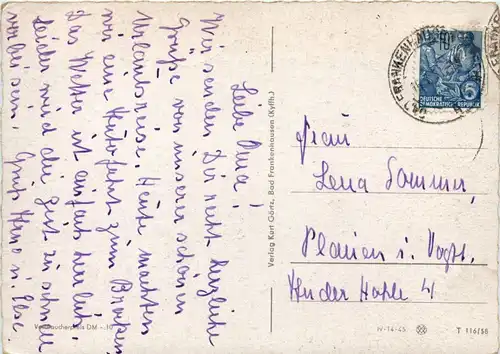 Liebe Oma!
Wir senden Dir recht herzliche
Grüße von unserer schönen
Urlaubsreise. Heute machten
wir eine Harzfahrt zum Brocken
Das Wetter ist einfach herrlich,
Leider wird die Zeit zu schnell
vorbei sein. Gruß Heino u. Else.
Verbraucherpreis DM -.10
Verlag Kurt Görtz, Bad Frankenhausen (Kyffh.)
FRANKENHAU
DEUTSCHE
DEMOKRATISCHE REPUBLIK
6
Frau
Lena Sommer,
Plauen i. Vogtl.
Hinder Hohle 4
N-14-45
T 116/58